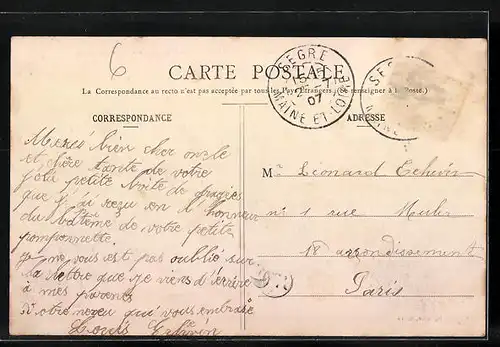 6
CARTE POSTALE
La Correspondance au recto n'est pas acceptée par tous les Pays Étrangers (Se renseigner à la Poste.)
SEGRÉ
MAINE ET LOIRE
07
CORRESPONDANCE
ADRESSE
Merci bien cher oncle
et chère tante de votre
joli petite boîte de dragées
que j'ai reçu en l'honneur
du bâtême de votre petite
pomponnette.
Je ne vous est pas oublié sur
la lettre que je viens d'écrire
à mes parents
Votre neveu qui vous embrasse
Louis
M. Léonard
n° 1 rue Muller
18 arrondissement
Paris